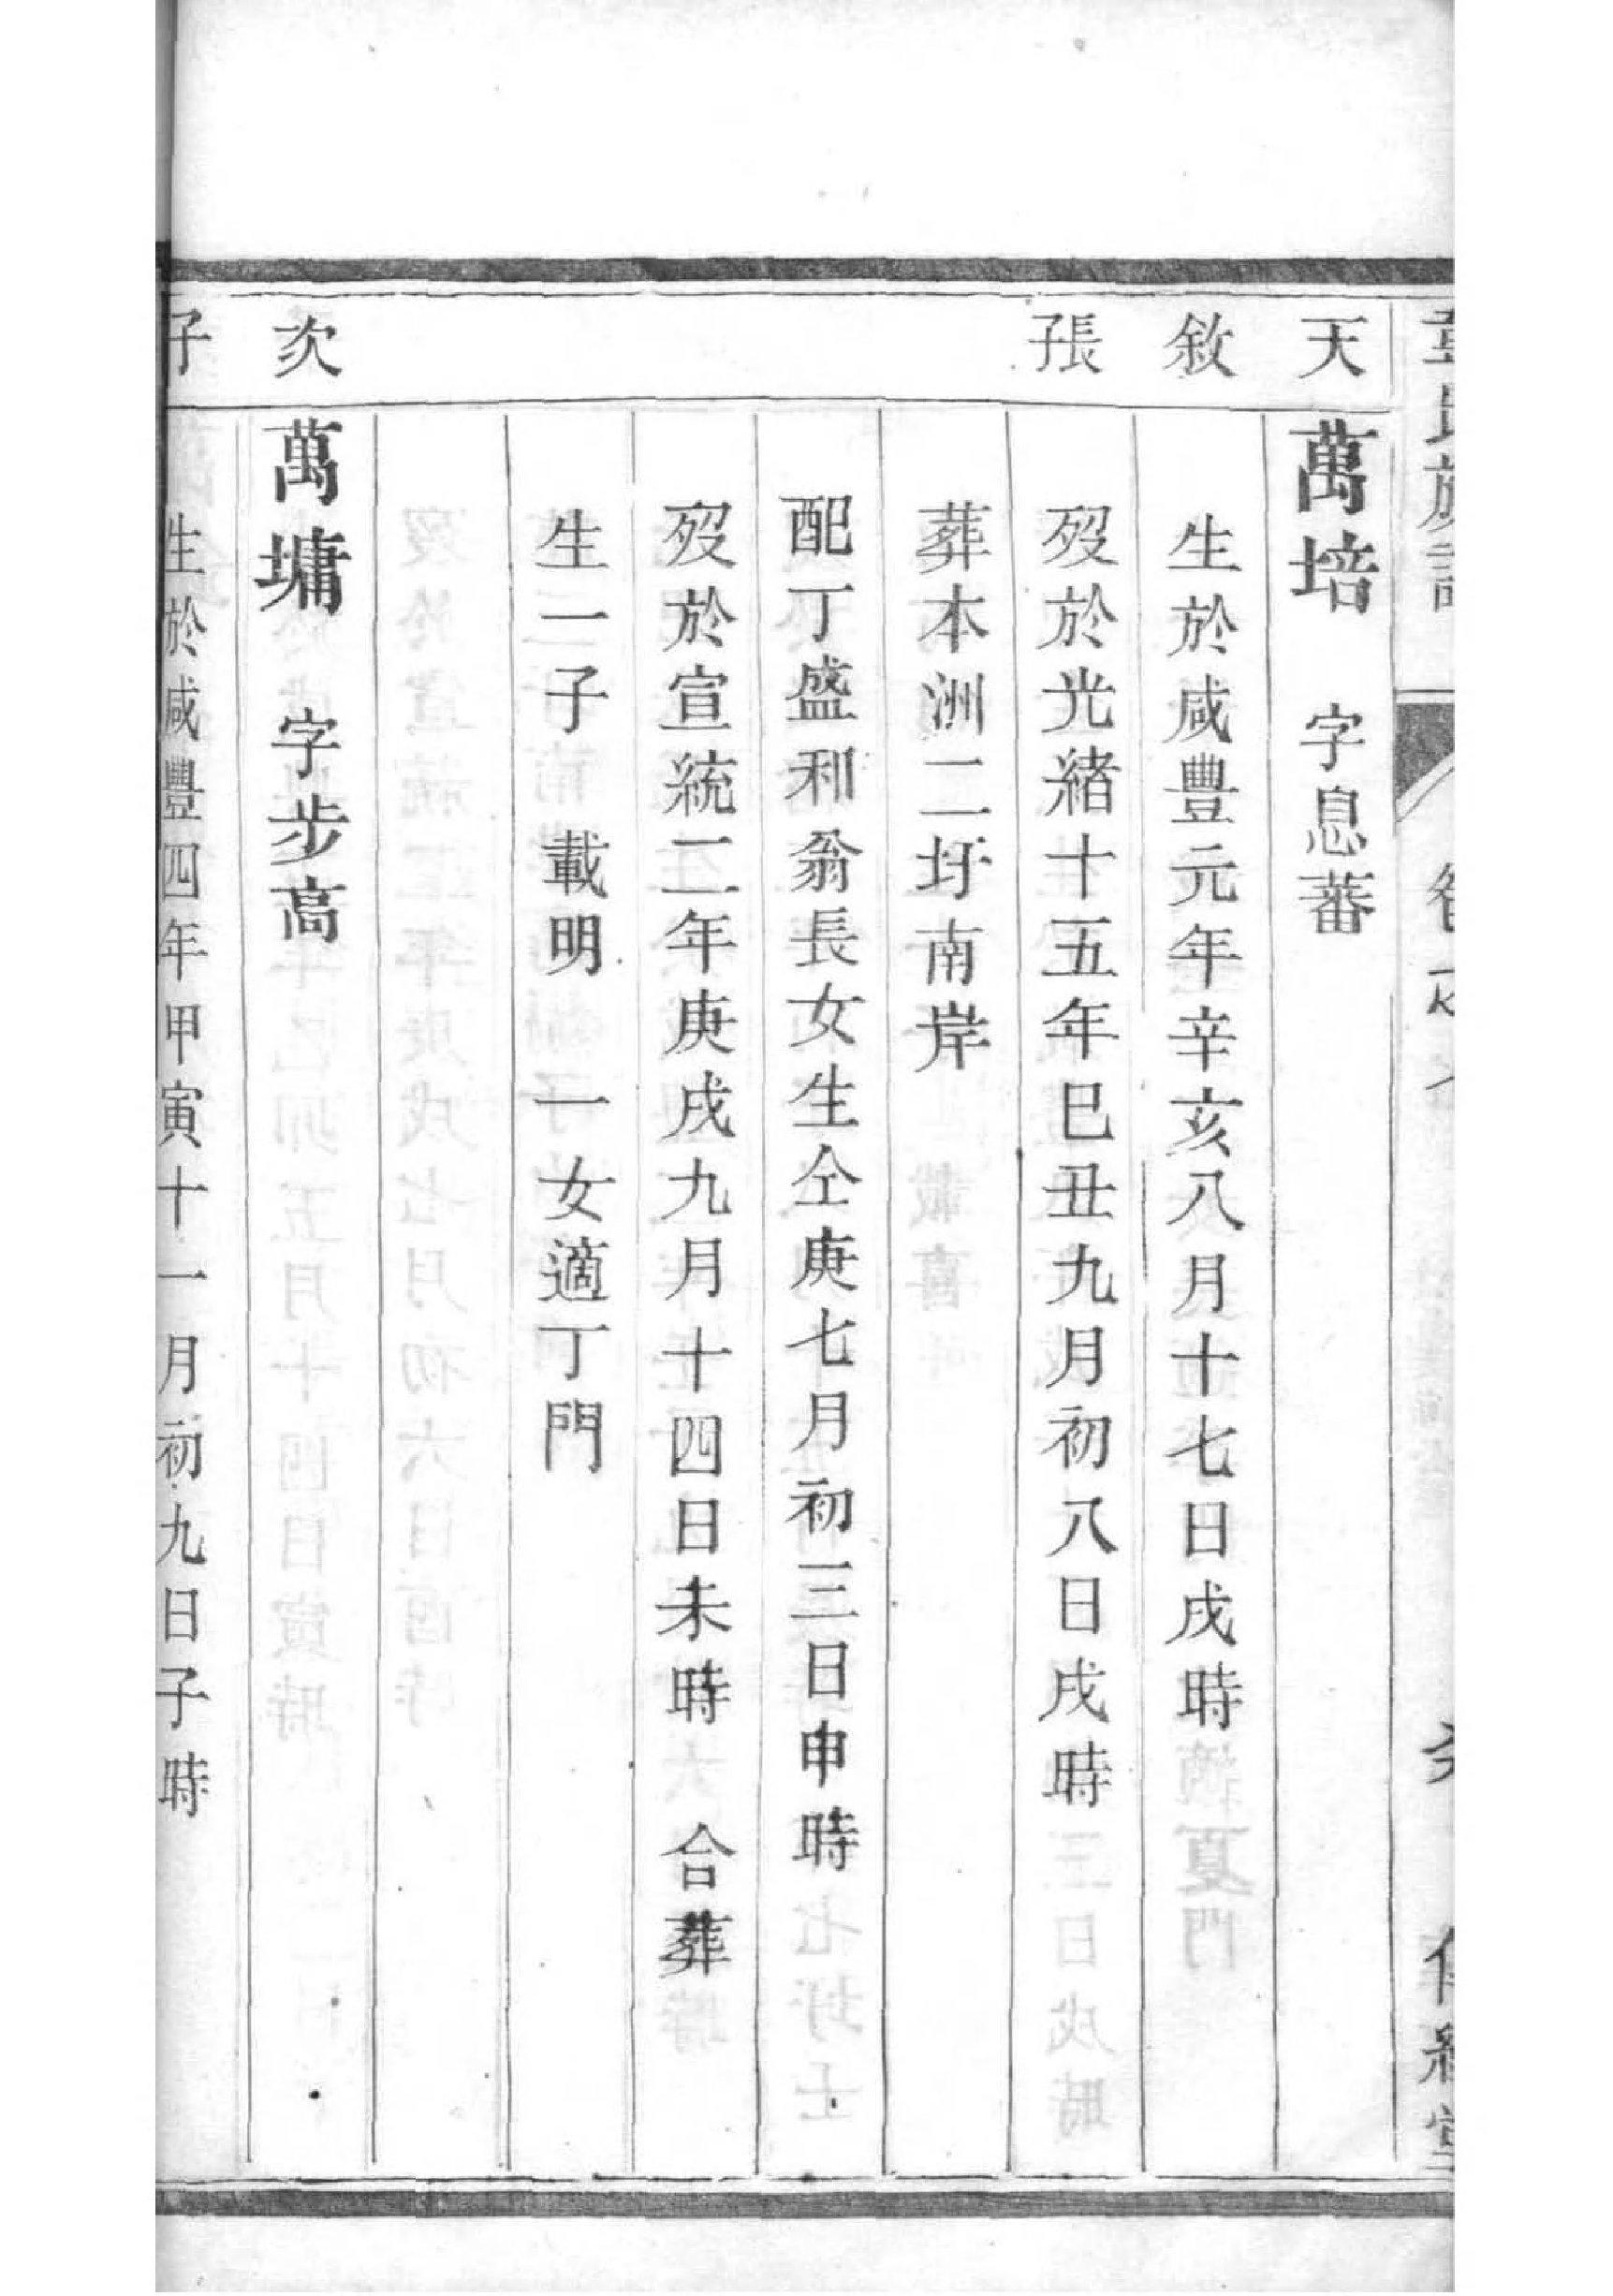 天 萬培 字息蕃
敘 生於咸豐元年辛亥八月十七日戌時
張子 歿於光緒十五年巳丑九月初八日戌時
葬本洲二圩南岸
配丁盛利翁長女生仝庚七月初三日申時
歿於宣統二年庚戌九月十四日未時 合葬
生一子 載明 一女適丁門
次 萬墉 字步高
子 生於咸豐四年甲寅十一月初九日子時